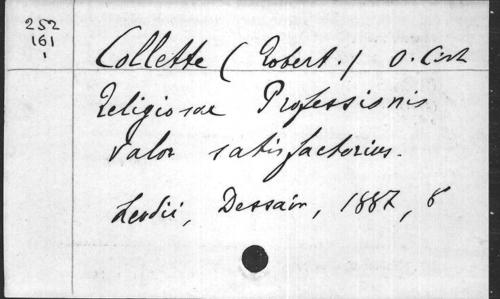 252
161
1
Collette (Robert.) O. Cist
Religiosae Professionis
valor satisfactorius.
Leodii, Dessain, 1887, 8